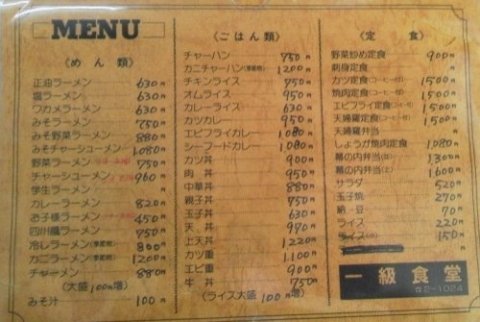 MENU
(めん類)
正油ラーメン 630円
塩ラーメン 630円
ワカメラーメン 630円
みそラーメン 750円
みそ野菜ラーメン 880円
みそチャーシューメン 1080円
野菜ラーメン 750円
チャーシューメン 960円
学生ラーメン 円
カレーラーメン 820円
お子様ラーメン 450円
四川風ラーメン 750円
冷しラーメン(季節物) 800円
カニラーメン(季節物) 1200円
チャーメン 880円
(大盛100円増)
みそ汁 100円
(ごはん類)
チャーハン 750円
カニチャーハン(季節物) 1200円
チキンライス 750円
オムライス 950円
カレーライス 630円
カツカレー 950円
エビフライカレー 1080円
シーフードカレー 1080円
カツ丼 900円
肉丼 950円
中華丼 880円
親子丼 750円
玉子丼 630円
天丼 990円
上天丼 1220円
カツ重 1100円
エビ重 900円
牛丼 750円
(ライス大盛100円増)
(定食)
野菜炒め定食 900円
刺身定食 〃
カツ定食(コーヒー付) 1500円
焼肉定食(コーヒー付) 1500円
エビフライ定食(コーヒー付) 1500円
天婦羅定食(コーヒー付) 1500円
天婦羅弁当 〃
しょうが焼肉定食 1080円
幕の内弁当(並) 1300円
幕の内弁当(上) 1600円
サラダ 520円
玉子焼 270円
納豆 70円
ライス 220円
ライス(小) 150円
一級食堂
☎2-1024